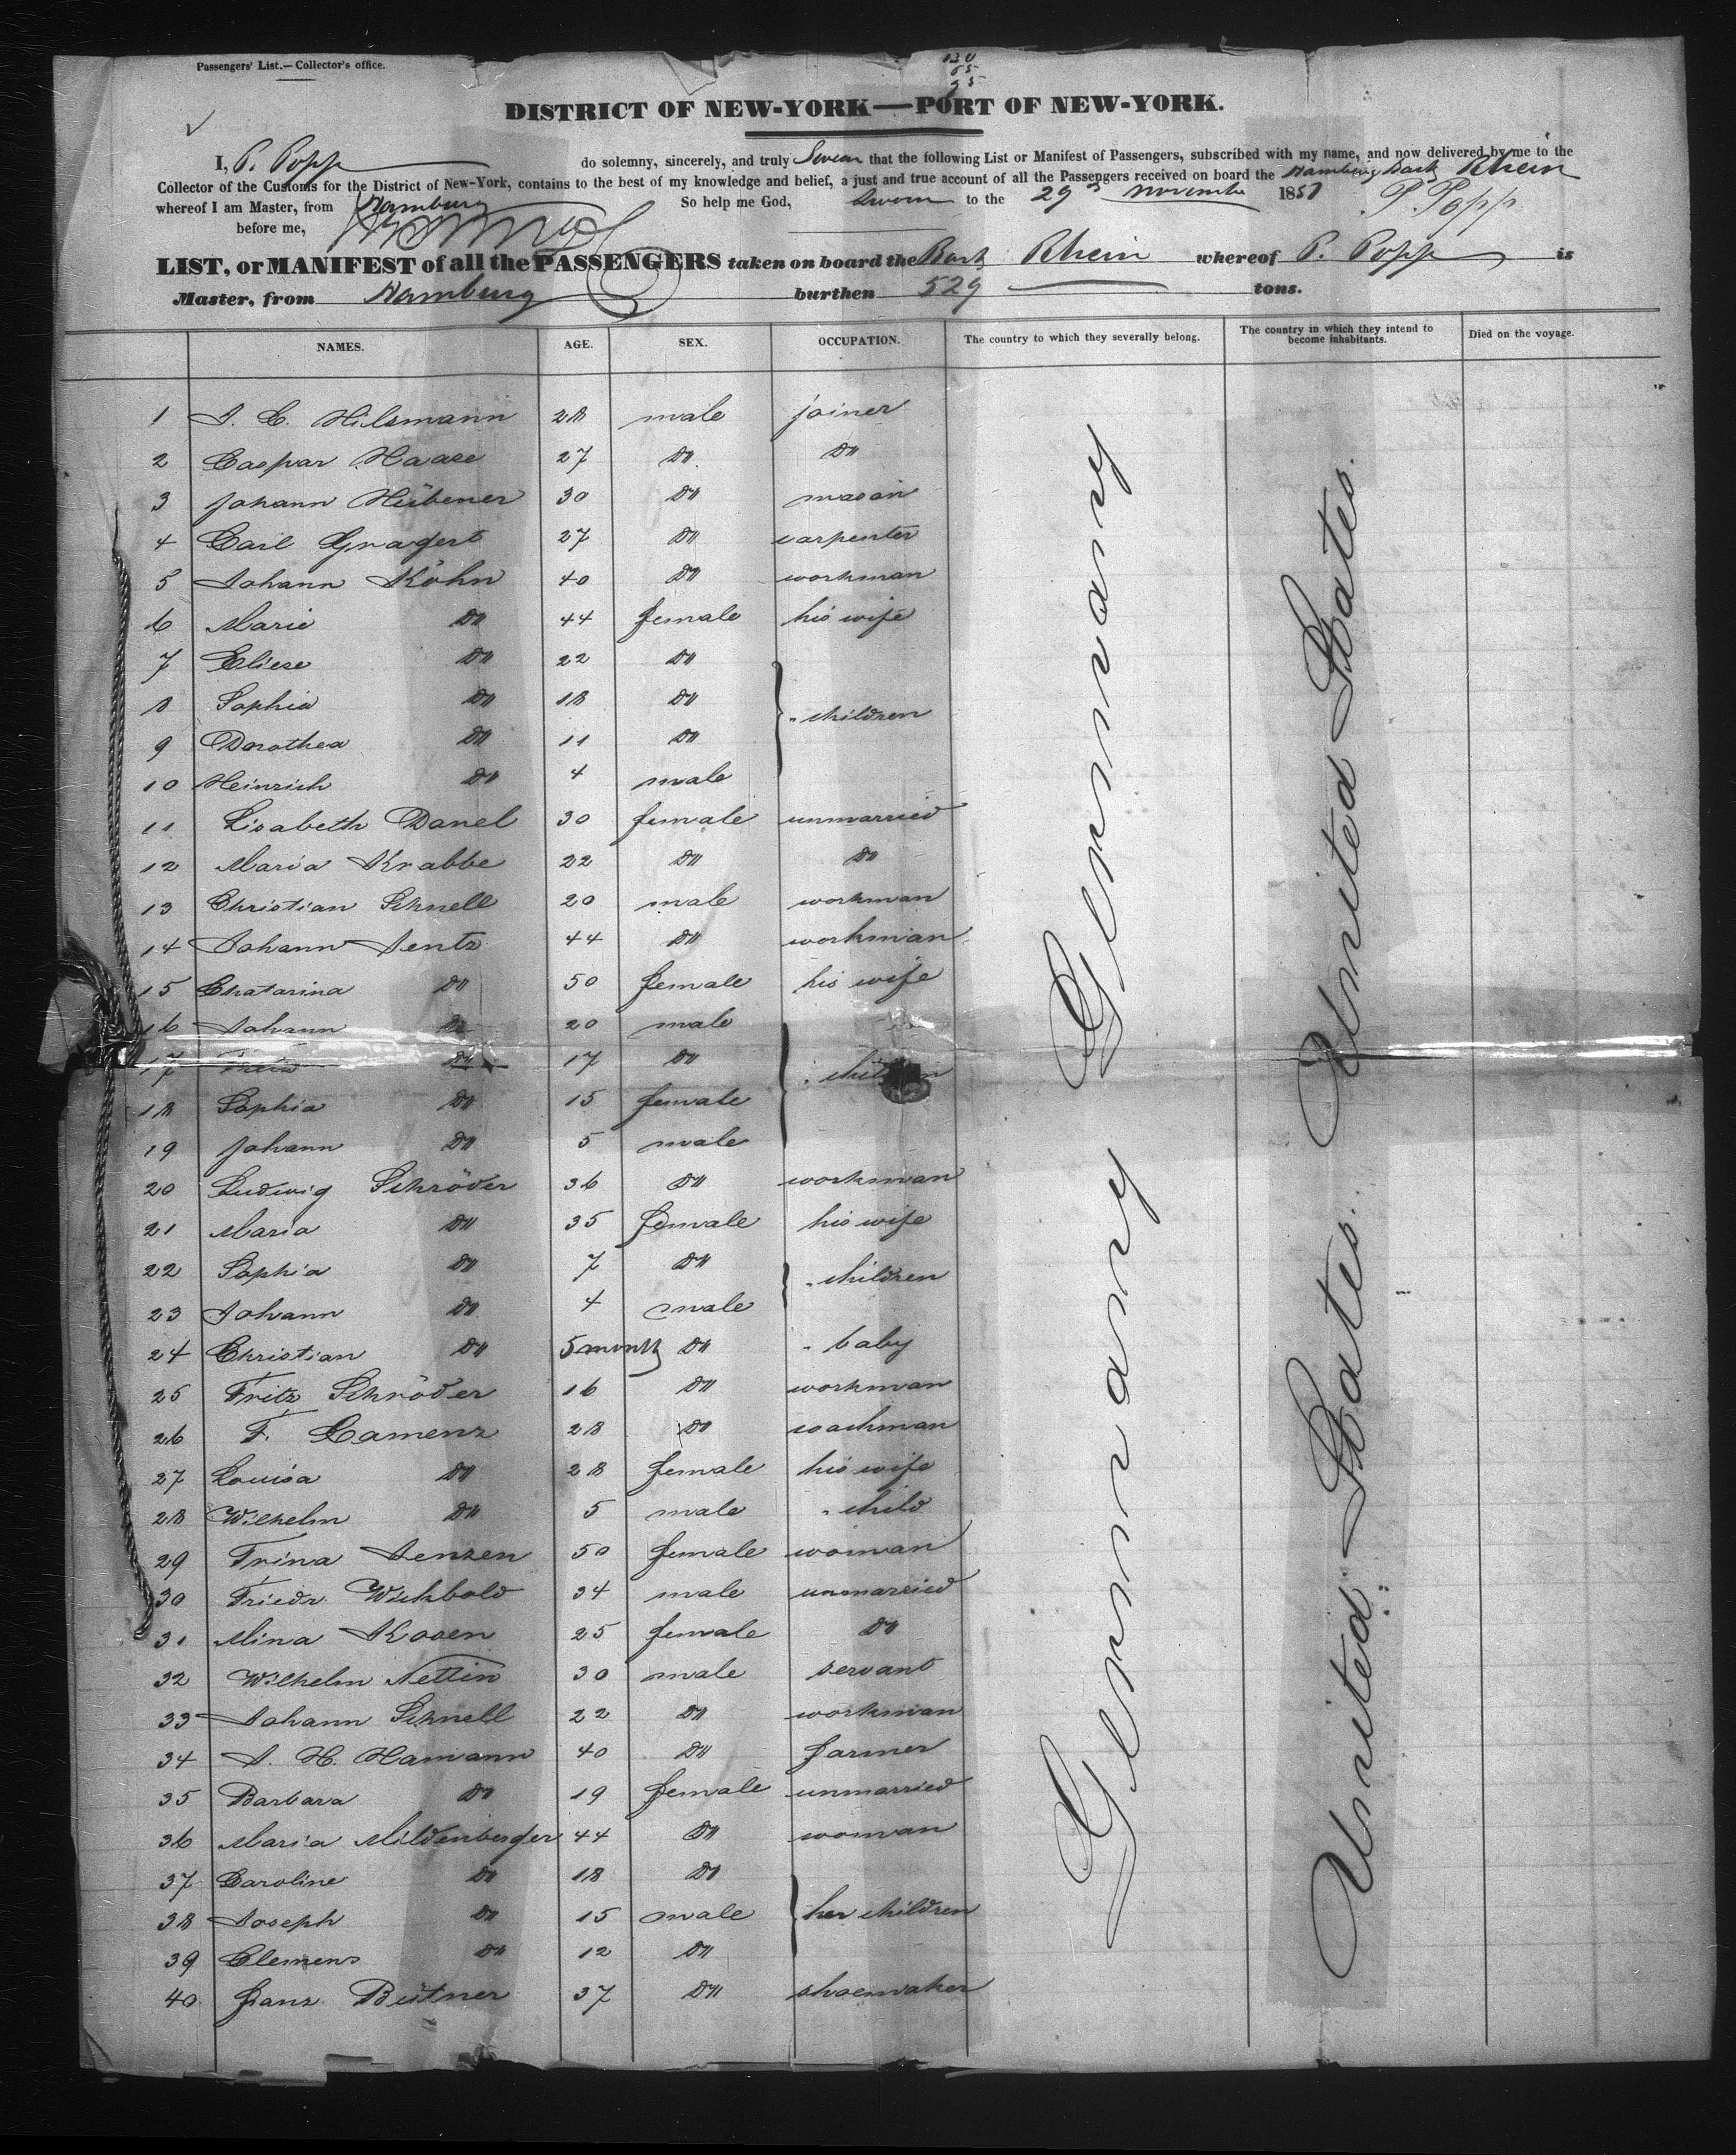 Passengers' List.—Collector's office.
130
65
DISTRICT OF NEW-YORK—PORT OF NEW-YORK.
I, P. Popp do solemny, sincerely, and truly Swear that the following List or Manifest of Passengers, subscribed with my name, and now delivered by me to the
Collector of the Customs for the District of New-York, contains to the best of my knowledge and belief, a just and true account of all the Passengers received on board the Hamburg Bark Rhein
whereof I am Master, from Hamburg So help me God, Sworn to the 29 novembe 1851 P. Popp
before me,
LIST, or MANIFEST of all the PASSENGERS taken on board the Bark Rhein whereof P. Popp is
Master, from Hamburg burthen 529 tons.
NAMES. AGE. SEX. OCCUPATION. The country to which they severally belong. The country in which they intend to become inhabitants. Died on the voyage.
1 J. C. Hilsmann 28 male joiner
2 Caspar Haase 27 Do Do
3 Johann Hübener 30 Do mason
4 Carl Gragert 27 Do carpenter
5 Johann Köhn 40 Do workman
6 Marie Do 44 female his wife
7 Eliese Do 22 Do
8 Sophia Do 18 Do " children
9 Dorothea Do 11 Do
10 Heinrich Do 4 male
11 Lisabeth Danel 30 female unmarried
12 Maria Krabbe 22 Do Do
13 Christian Schnell 20 male workman
14 Johann Jentz 44 Do workman
15 Chatarina Do 50 female his wife
16 Johann Do 20 male
17 Do 17 Do " children
18 Sophia Do 15 female
19 Johann Do 5 male
20 Ludwig Schröder 36 Do workman
21 Maria Do 35 female his wife
22 Sophia Do 7 Do " children
23 Johann Do 4 male
24 Christian Do 5 month Do " baby
25 Fritz Schröder 16 Do workman
26 F. Camenz 28 Do coachman
27 Louisa Do 28 female his wife
28 Wilhelm Do 5 male " child
29 Trina Jensen 50 female woman
30 Friedr Wichbold 34 male unmarried
31 Mina Kosen 25 female Do
32 Wilhelm Nettin 30 male servant
33 Johann Schnell 22 Do workman
34 J. H. Hamann 40 Do farmer
35 Barbara Do 19 female unmarried
36 Maria Mildenberger 44 Do woman
37 Caroline Do 18 Do
38 Joseph Do 15 male her children
39 Clemens Do 12 Do
40 Franz Bütner 37 Do shoemaker
Germany
Germany
United States.
United States.